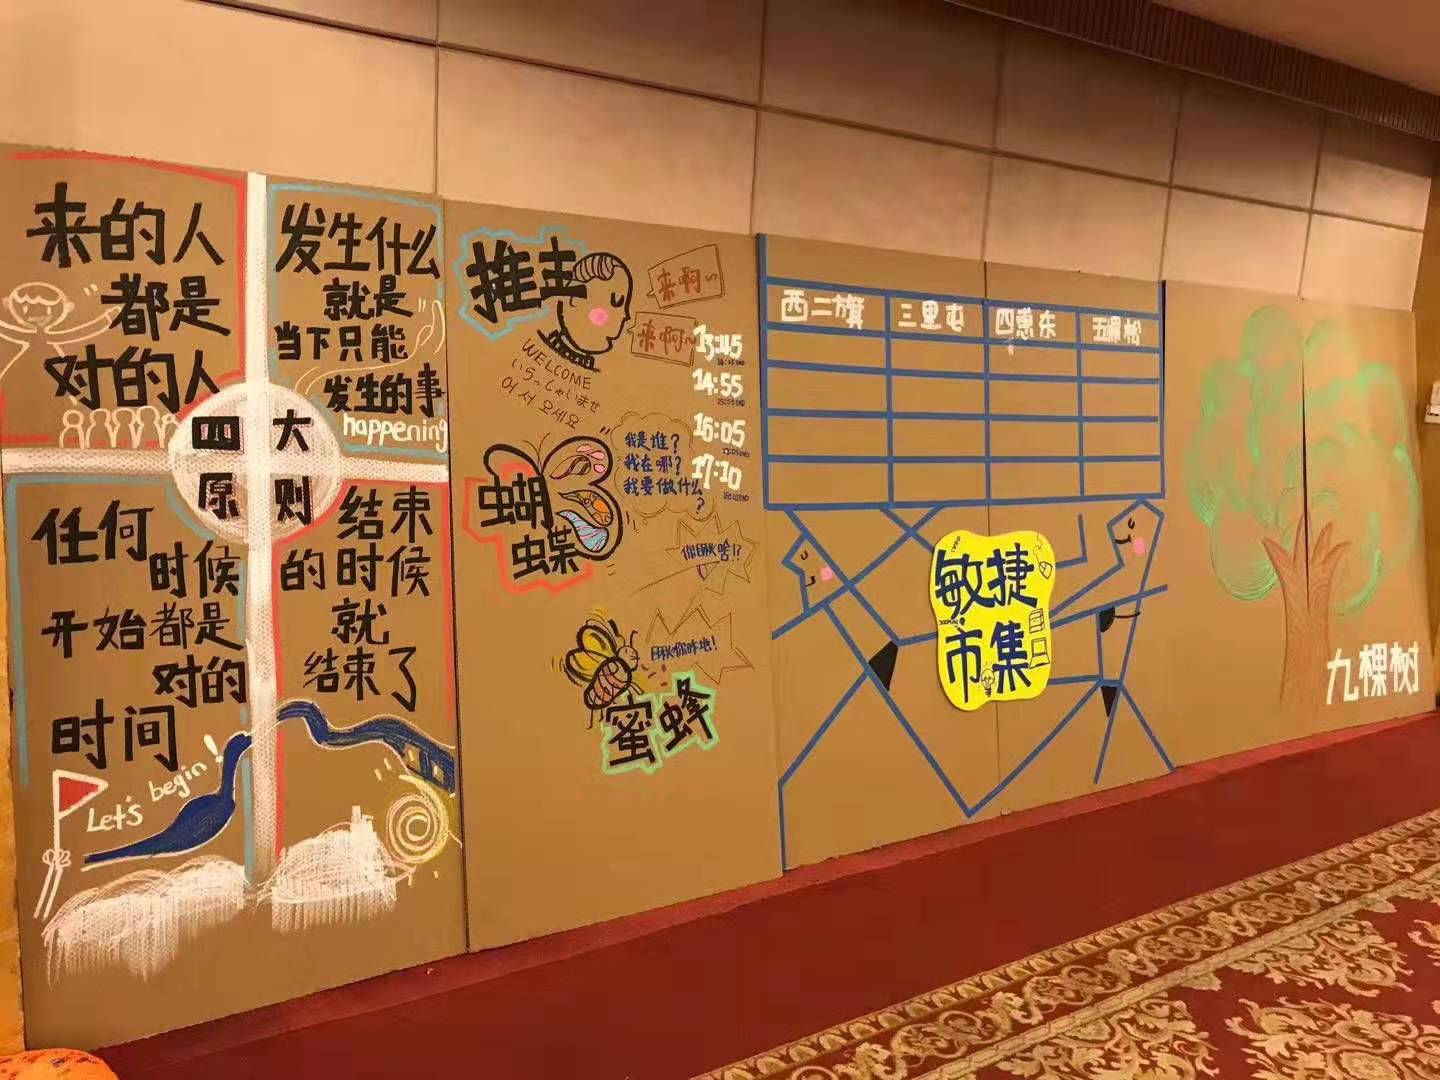 来的人
都是
对的人
发生什么
就是
当下只能
发生的事
happening
四大
原则
任何
时候
开始都是
对的
时间
Let's begin!
结束
的时候
就
结束了
推主
来啊~
来啊~
WELCOME
いらっしゃいませ
어서 오세요
13:45
14:55
16:05
17:10
蝴
蝶
我是谁?
我在哪?
我要做什么
?
你瞅啥!?
瞅你咋地!
蜜蜂
西二旗
三里屯
四惠东
五棵松
敏捷
市集
九棵树